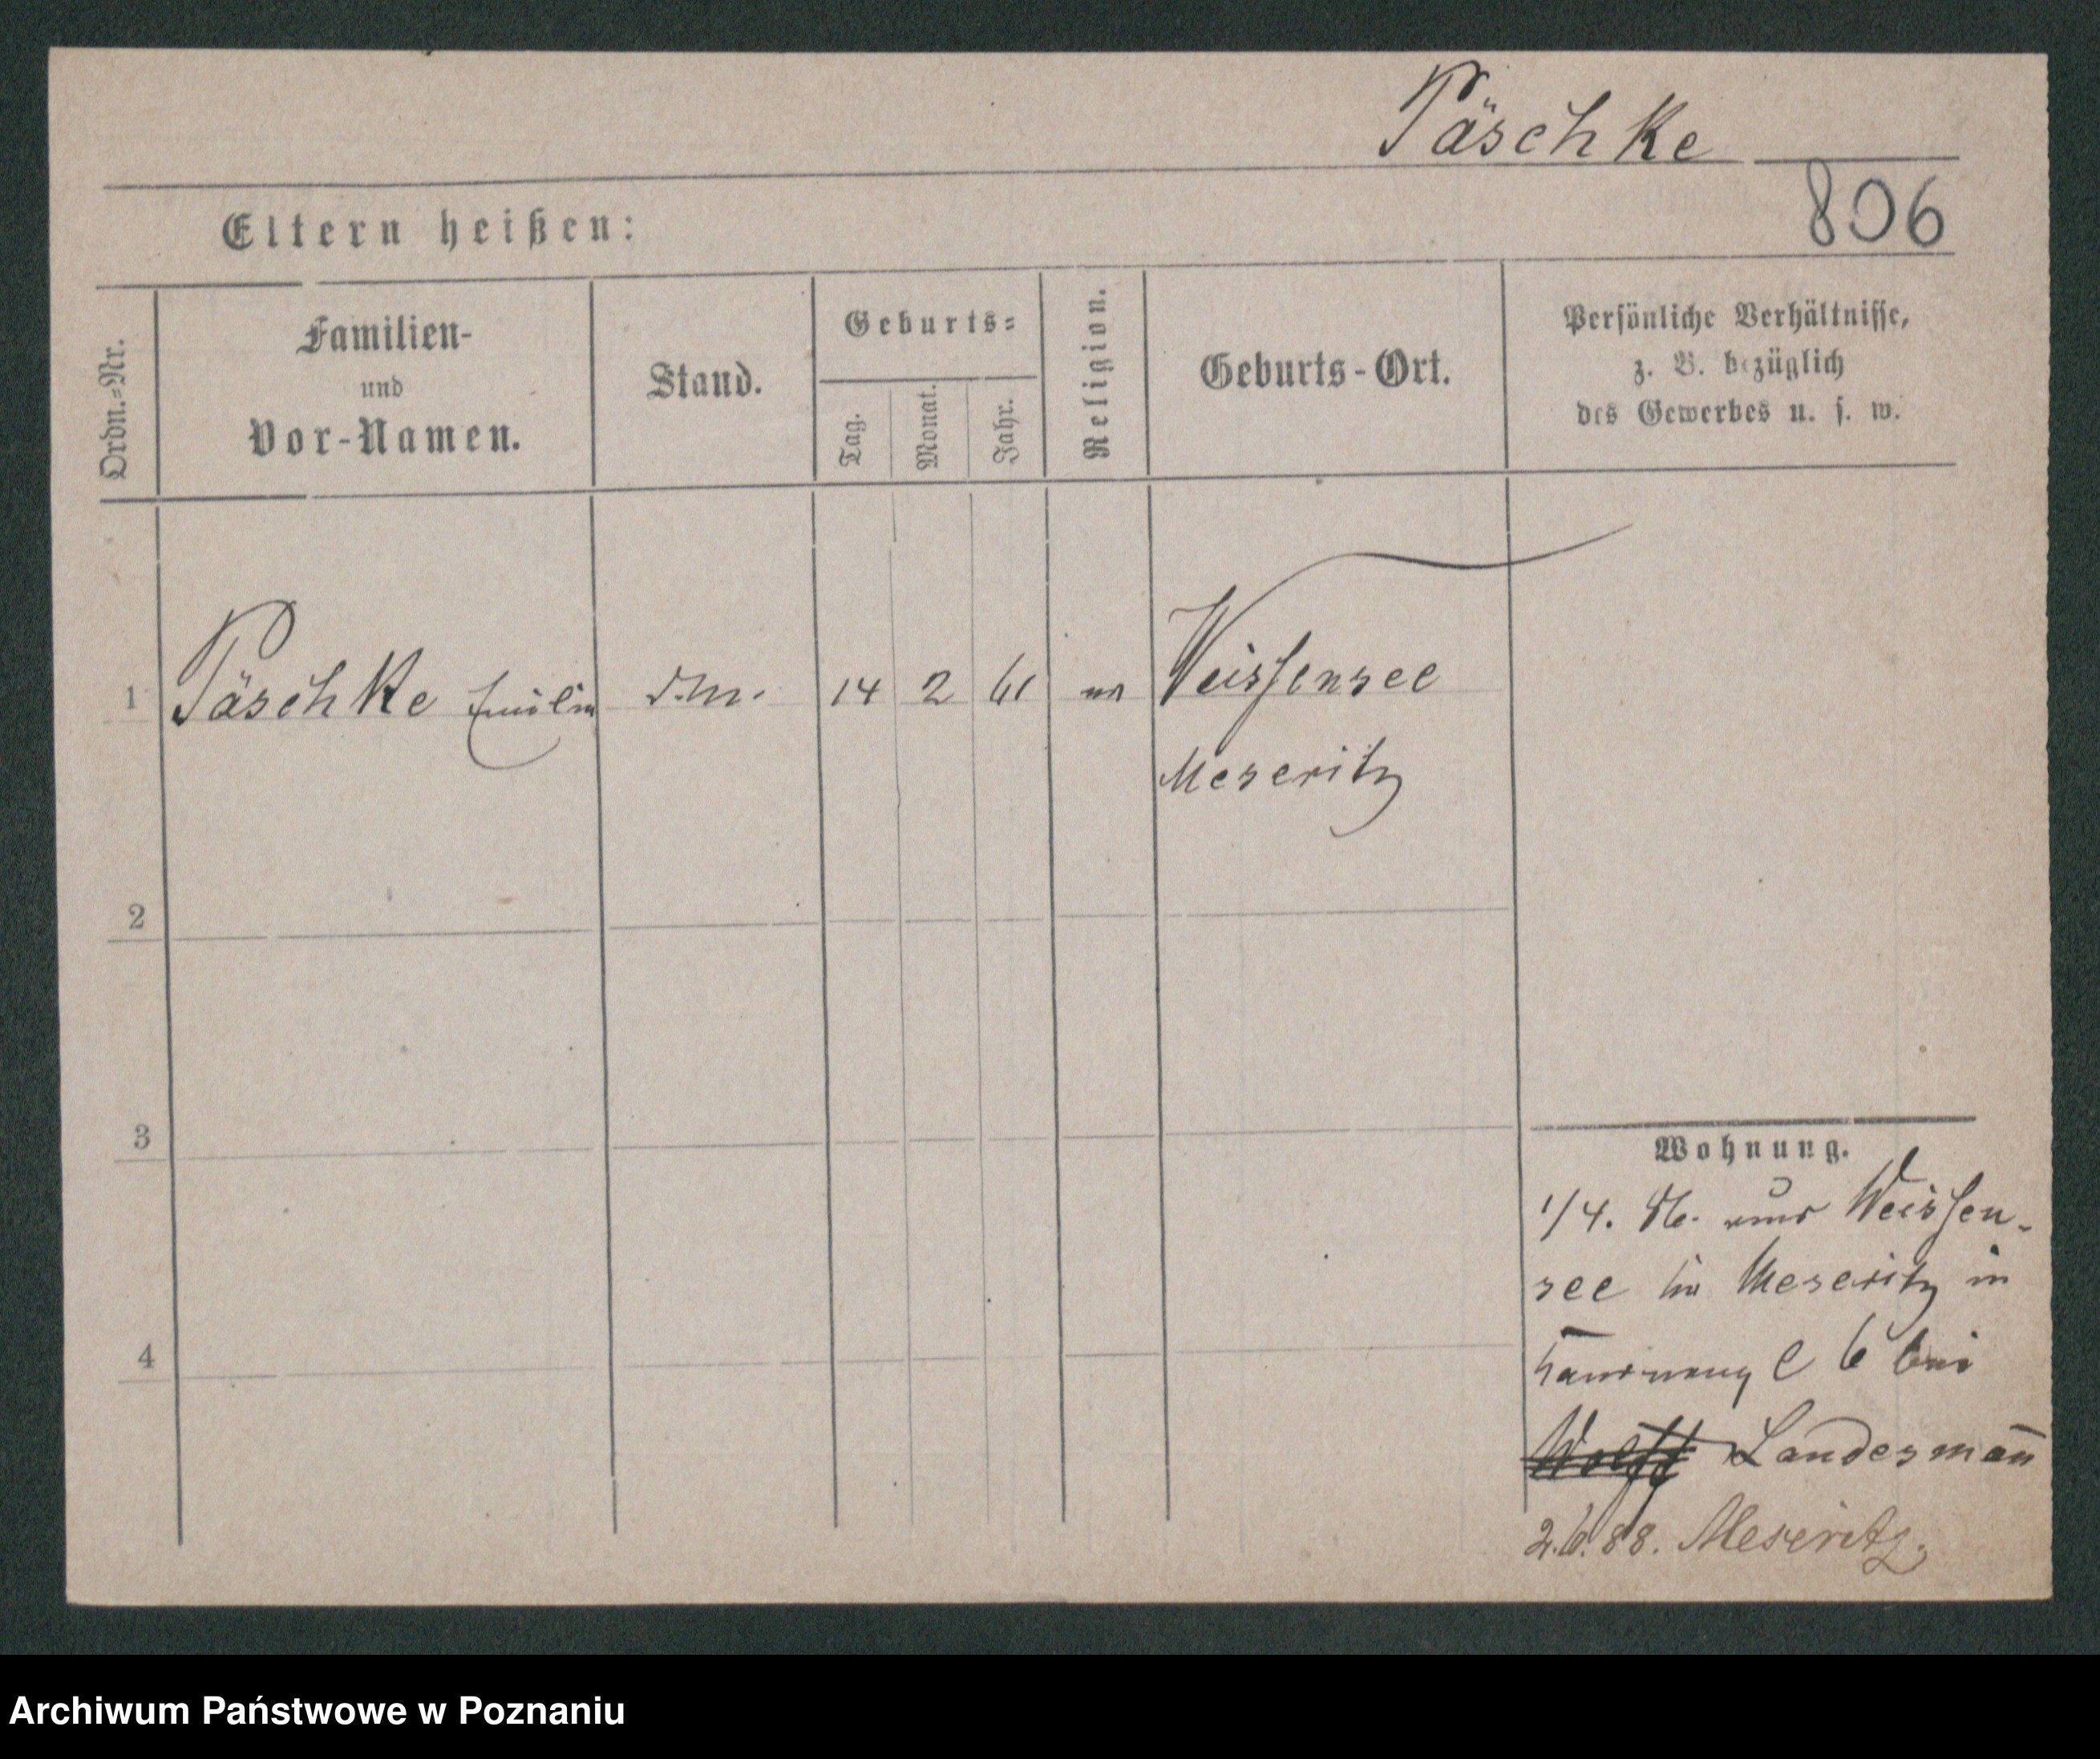 Päschke
806
Eltern heißen:
Ordn.-Nr.
Familien-
und
Vor-Namen.
Stand.
Geburts-
Tag.
Monat.
Jahr.
Religion.
Geburts-Ort.
Persönliche Verhältnisse,
z. B. bezüglich
des Gewerbes u. s. w.
1 Päschke 14 2 61 Weissensee
Meseritz
2
3
4
Wohnung.
1/4. Weissen-
see Meseritz in
6 bei
Wolff Landesmann
2.6.88. Meseritz.
Archiwum Państwowe w Poznaniu